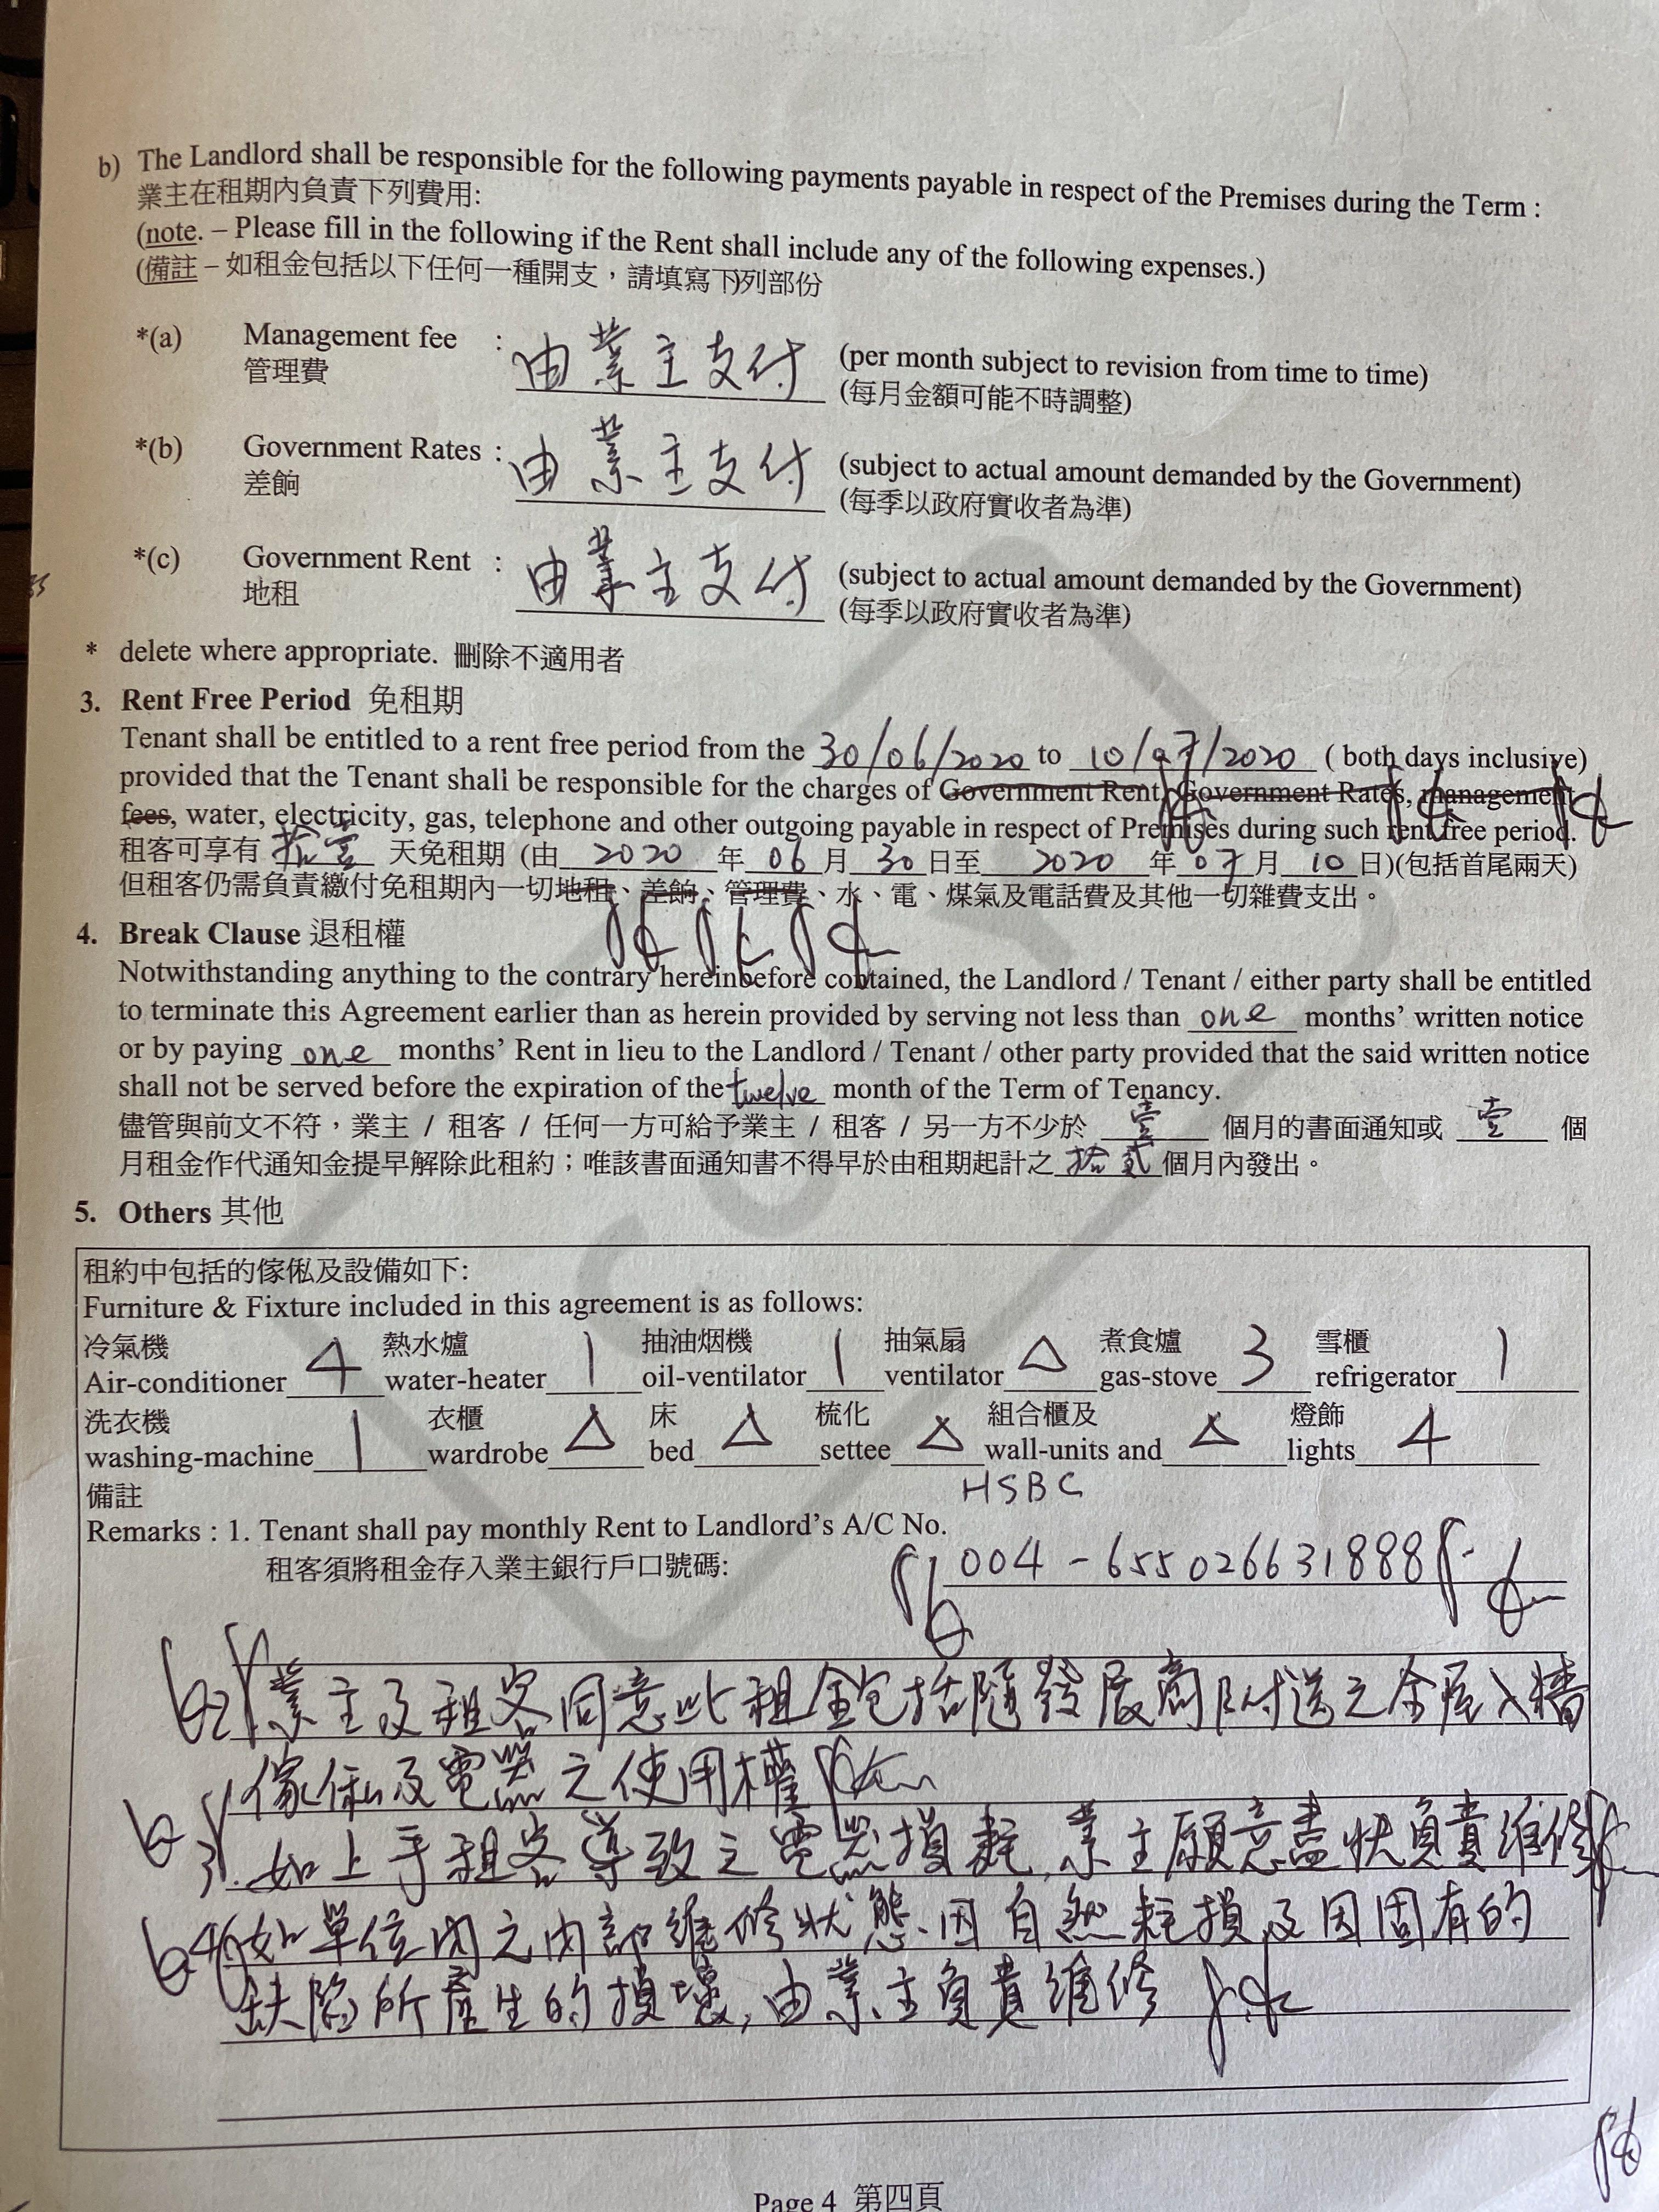 b) The Landlord shall be responsible for the following payments payable in respect of the Premises during the Term :
業主在租期內負責下列費用:
(note. – Please fill in the following if the Rent shall include any of the following expenses.)
(備註 – 如租金包括以下任何一種開支，請填寫下列部份
*(a) Management fee : 由業主支付 (per month subject to revision from time to time)
管理費 (每月金額可能不時調整)
*(b) Government Rates : 由業主支付 (subject to actual amount demanded by the Government)
差餉 (每季以政府實收者為準)
*(c) Government Rent : 由業主支付 (subject to actual amount demanded by the Government)
地租 (每季以政府實收者為準)
* delete where appropriate. 刪除不適用者
3. Rent Free Period 免租期
Tenant shall be entitled to a rent free period from the 30/06/2020 to 10/07/2020 ( both days inclusive)
provided that the Tenant shall be responsible for the charges of Government Rent, Government Rates, management
fees, water, electricity, gas, telephone and other outgoing payable in respect of Premises during such rent free period.
租客可享有 拾壹 天免租期 (由 2020 年 06 月 30 日至 2020 年 07 月 10 日)(包括首尾兩天)
但租客仍需負責繳付免租期內一切地租、差餉、管理費、水、電、煤氣及電話費及其他一切雜費支出。
4. Break Clause 退租權
Notwithstanding anything to the contrary hereinbefore contained, the Landlord / Tenant / either party shall be entitled
to terminate this Agreement earlier than as herein provided by serving not less than one months' written notice
or by paying one months' Rent in lieu to the Landlord / Tenant / other party provided that the said written notice
shall not be served before the expiration of the twelve month of the Term of Tenancy.
儘管與前文不符，業主 / 租客 / 任何一方可給予業主 / 租客 / 另一方不少於 壹 個月的書面通知或 壹 個
月租金作代通知金提早解除此租約；唯該書面通知書不得早於由租期起計之 拾貳 個月內發出。
5. Others 其他
租約中包括的傢俬及設備如下:
Furniture & Fixture included in this agreement is as follows:
冷氣機 熱水爐 抽油烟機 抽氣扇 煮食爐 雪櫃
Air-conditioner 4 water-heater 1 oil-ventilator 1 ventilator △ gas-stove 3 refrigerator 1
洗衣機 衣櫃 床 梳化 組合櫃及 燈飾
washing-machine 1 wardrobe △ bed △ settee △ wall-units and △ lights 4
備註 HSBC
Remarks : 1. Tenant shall pay monthly Rent to Landlord's A/C No.
租客須將租金存入業主銀行戶口號碼: 004-655026631888
2. 業主及租客同意此租金包括隨發展商附送之全屋入牆
傢俬及電器之使用權
3. 如上手租客導致之電器損耗,業主願意盡快負責維修
4. 如單位內之內部維修狀態、因自然耗損及因固有的
缺陷所產生的損壞,由業主負責維修
Page 4 第四頁
COPY